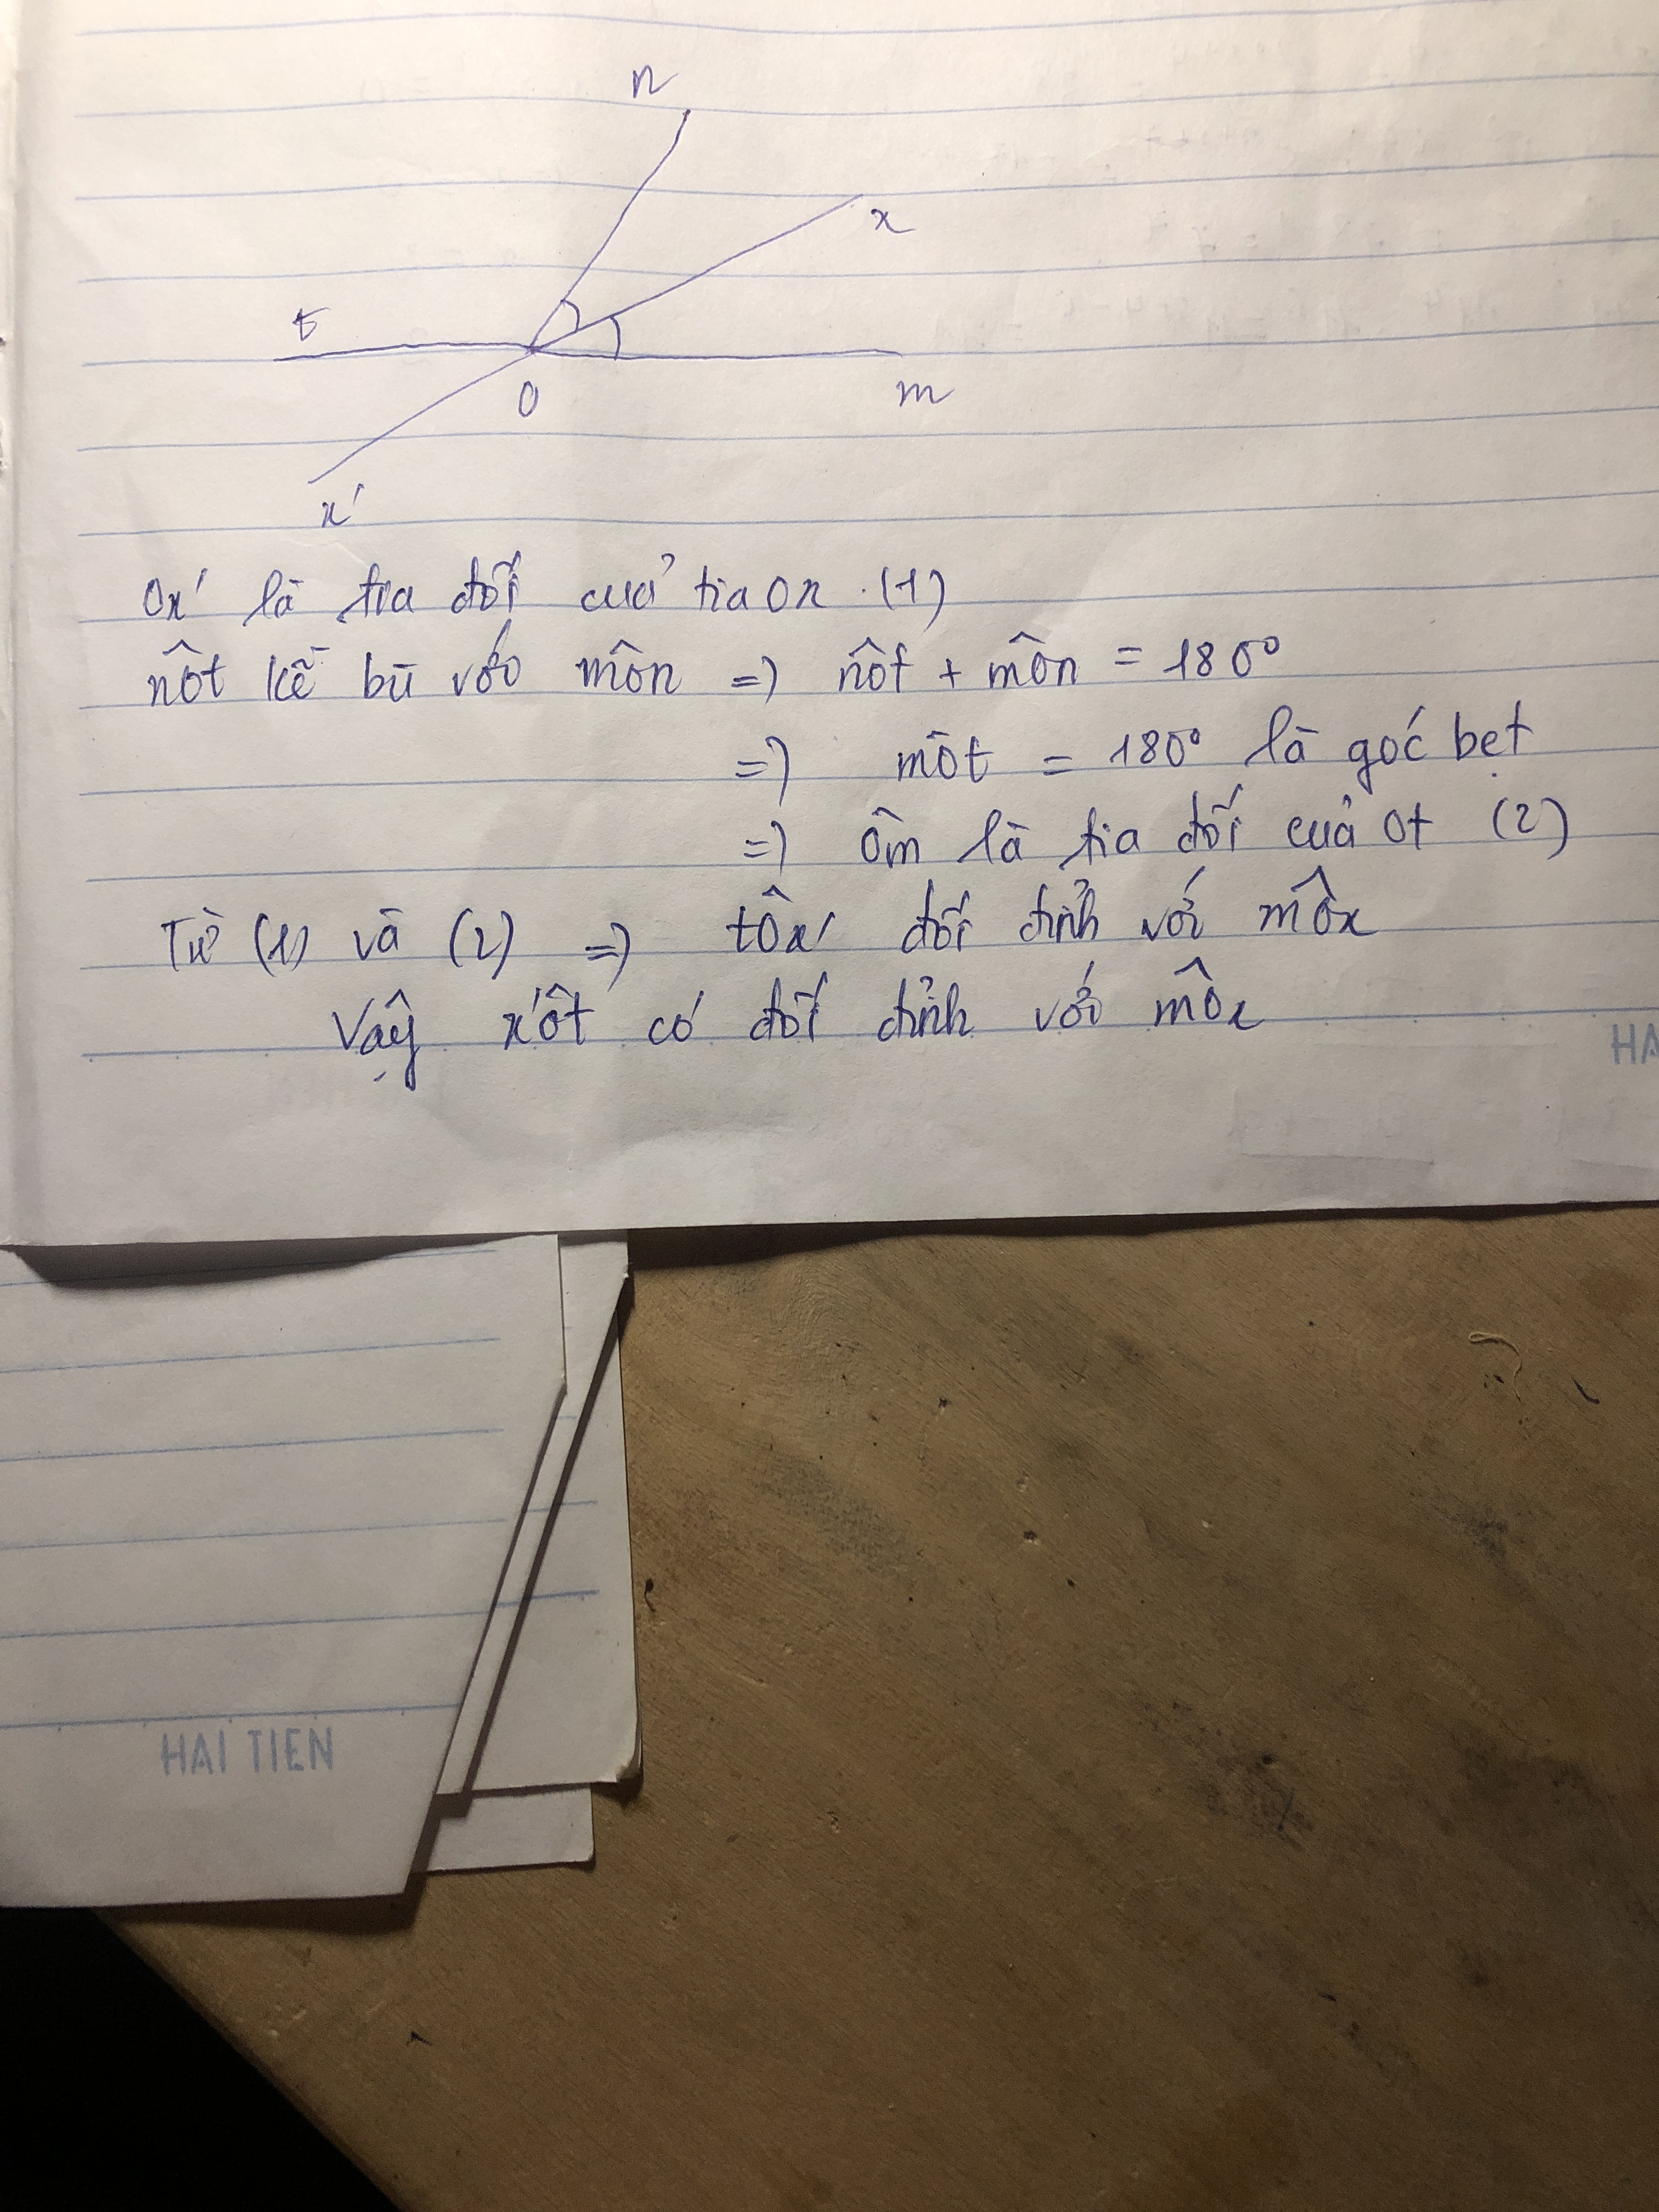 n
x
t
O
m
x'
Ox' là tia đối của tia Ox. (1)
nÔt kề bù với mÔn => nÔt + mÔn = 180°
=> mÔt = 180° là góc bẹt
=> Ôm là tia đối của Ot (2)
Từ (1) và (2) => tÔx' đối đỉnh với mÔx
Vậy x'Ôt có đối đỉnh với mÔx
HA
HAI TIEN